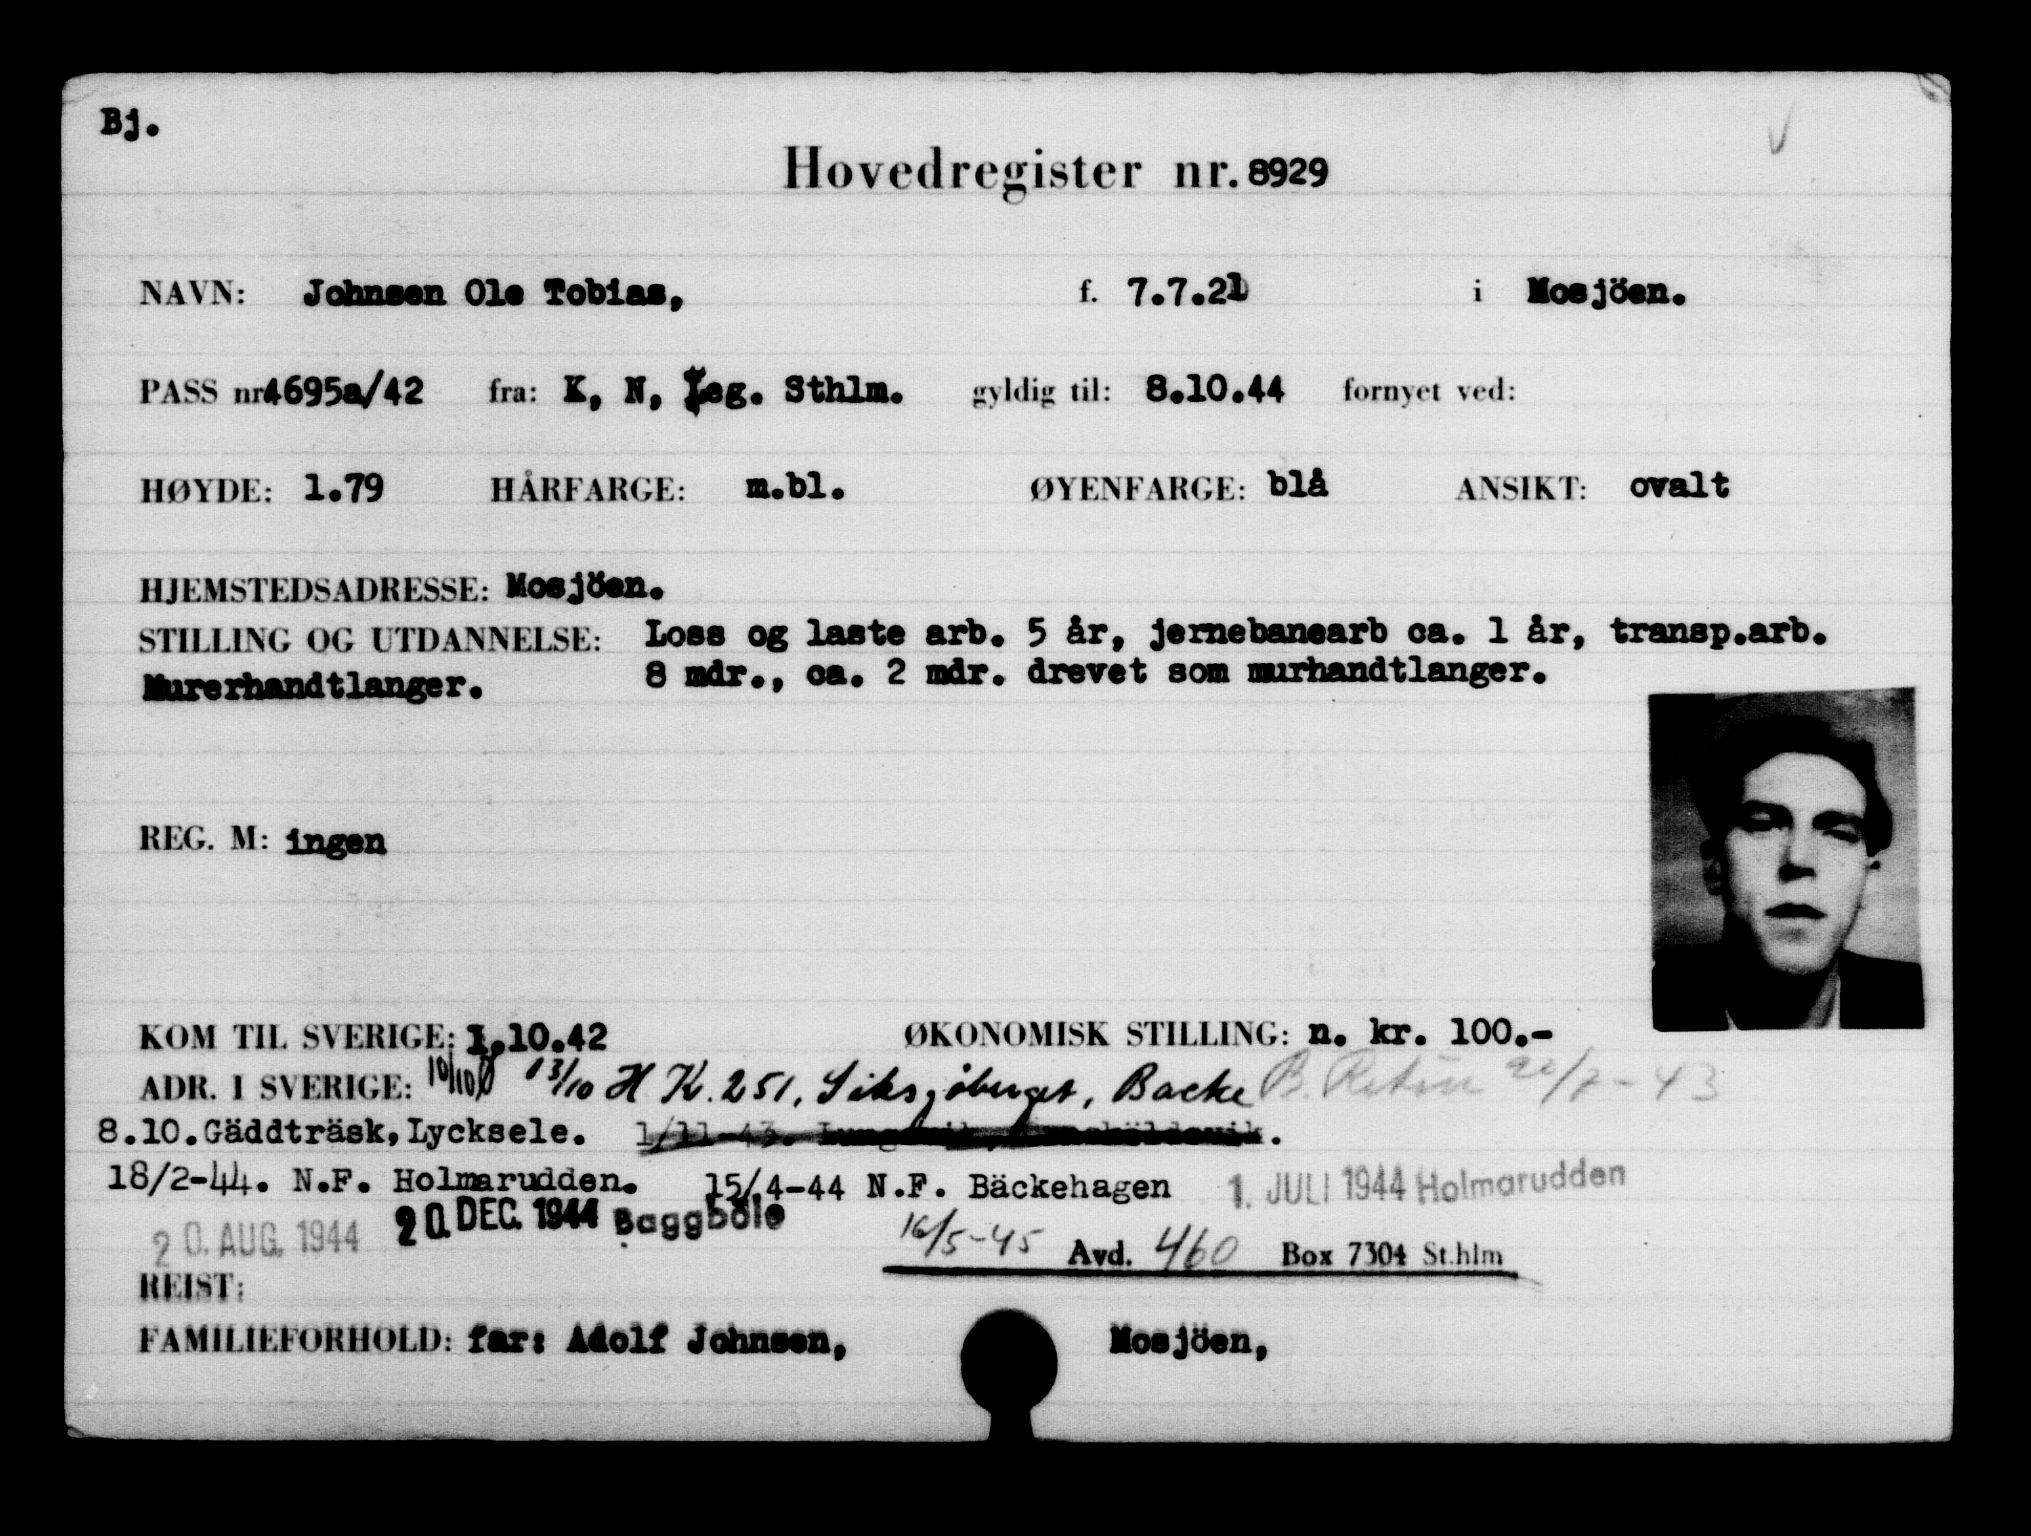 Bj.
Hovedregister nr. 8929
NAVN: Johnsen Ole Tobias, f. 7.7.21 i Mosjöen.
PASS nr 4695a/42 fra: K, N, Leg. Sthlm. gyldig til: 8.10.44 fornyet ved:
HØYDE: 1.79 HÅRFARGE: m.bl. ØYENFARGE: blå ANSIKT: ovalt
HJEMSTEDSADRESSE: Mosjöen.
STILLING OG UTDANNELSE: Loss og laste arb. 5 år, jernebanearb ca. 1 år, transp.arb.
Murerhandtlanger. 8 mdr., ca. 2 mdr. drevet som murhandtlanger.
REG. M: ingen
KOM TIL SVERIGE: 1.10.42 ØKONOMISK STILLING: n. kr. 100.-
ADR. I SVERIGE: 10/10 13/10 H K. 251, Siksjöberget, Backe B. 43
8.10.Gäddträsk,Lycksele. 1/11-43.
18/2-44. N.F. Holmarudden. 15/4-44 N.F. Bäckehagen 1. JULI 1944 Holmarudden
20. AUG. 1944 20. DEC. 1944 Baggböle 16/5-45 Avd. 460 Box 7304 St.hlm
REIST:
FAMILIEFORHOLD: far: Adolf Johnsen, Mosjöen,